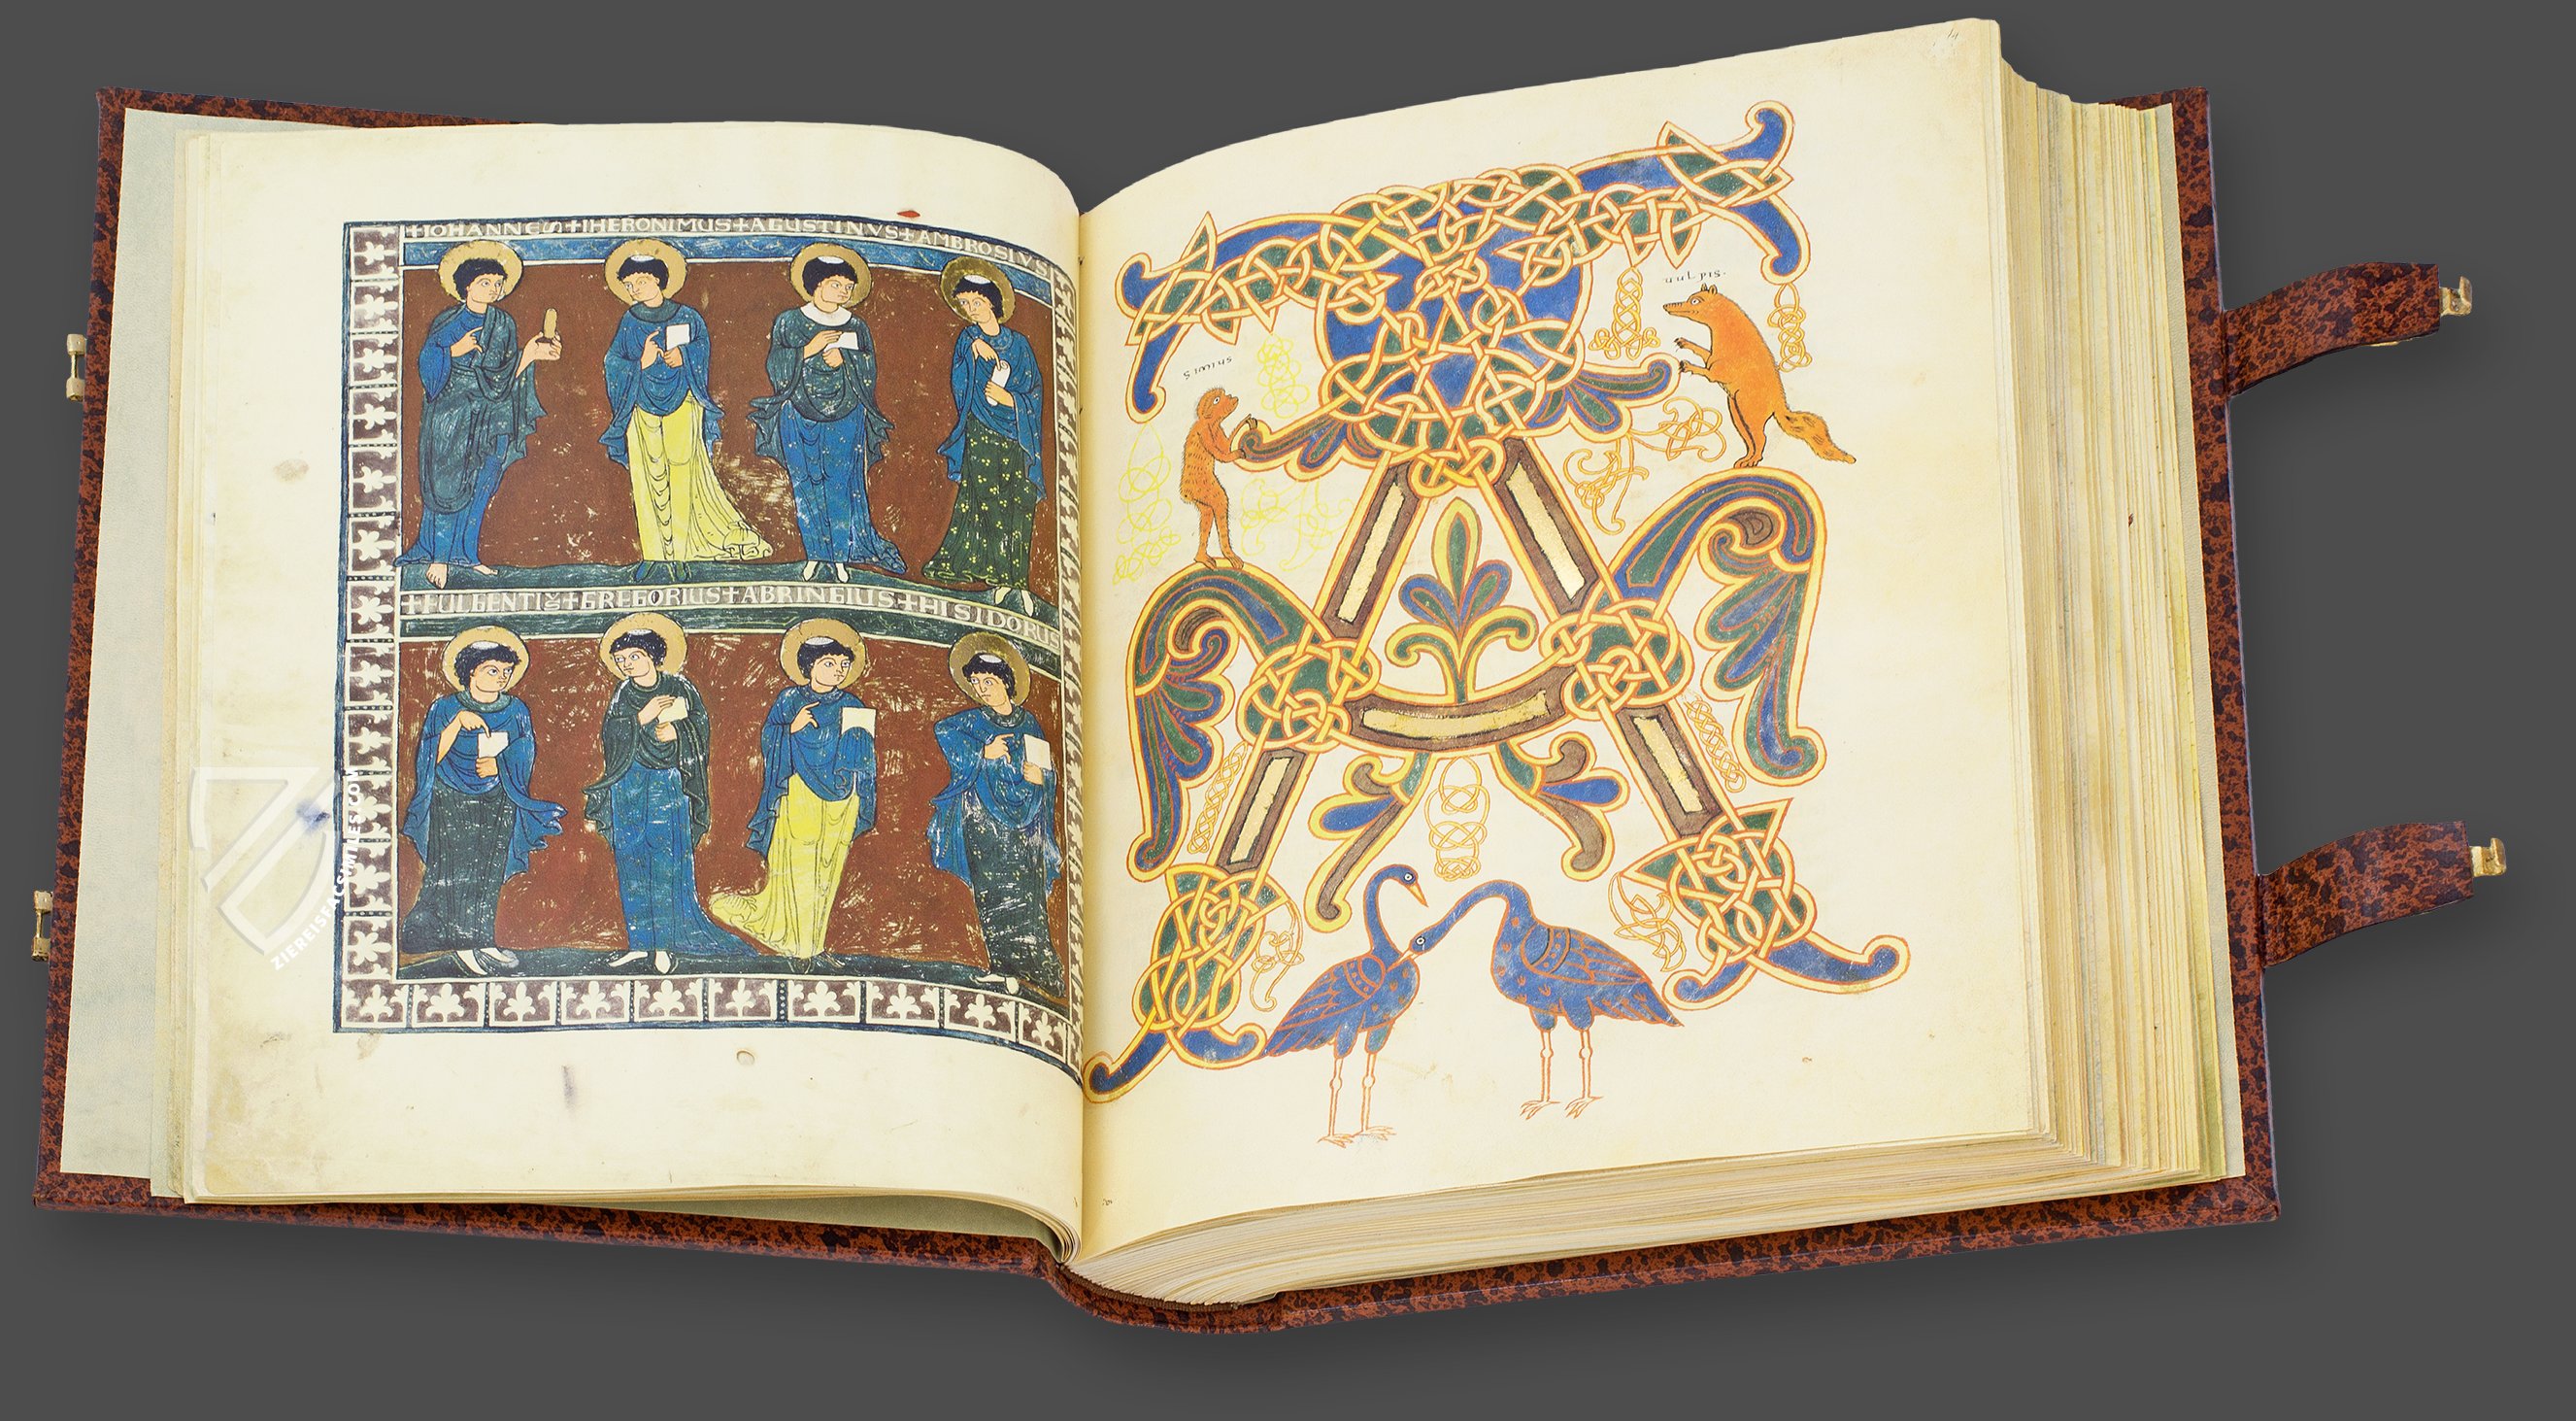 +IOHANNES+IHERONIMUS+AGUSTINVS+AMBROSIVS
+FULGENTIS+GREGORIUS+ABRINGIUS+HISIDORUS
simius
uulpis.
A
ZIEREISFACSIMILES.COM